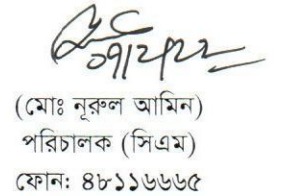 ০৭/২/২২
(মোঃ নূরুল আমিন)
পরিচালক (সিএম)
ফোন: ৪৮১১৬৬৬৫